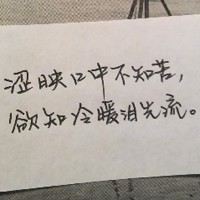 涩映口中不知苦，
欲知冷暖泪先流。